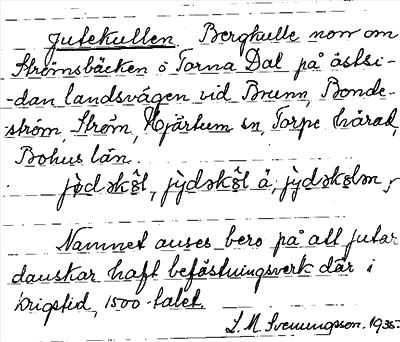 Jutekullen. Bergkulle norr om
Strömsbäcken ö Torna Dal på östsi-
-dan landsvägen vid Brunn, Bonde-
ström, Ström, Hjärtum sn, Torpe härad,
Bohus län.
Namnet anses bero på att jutar
danskar haft befästningsverk där i
krigstid, 1500-talet.
L. M. Svenungsson. 1935.